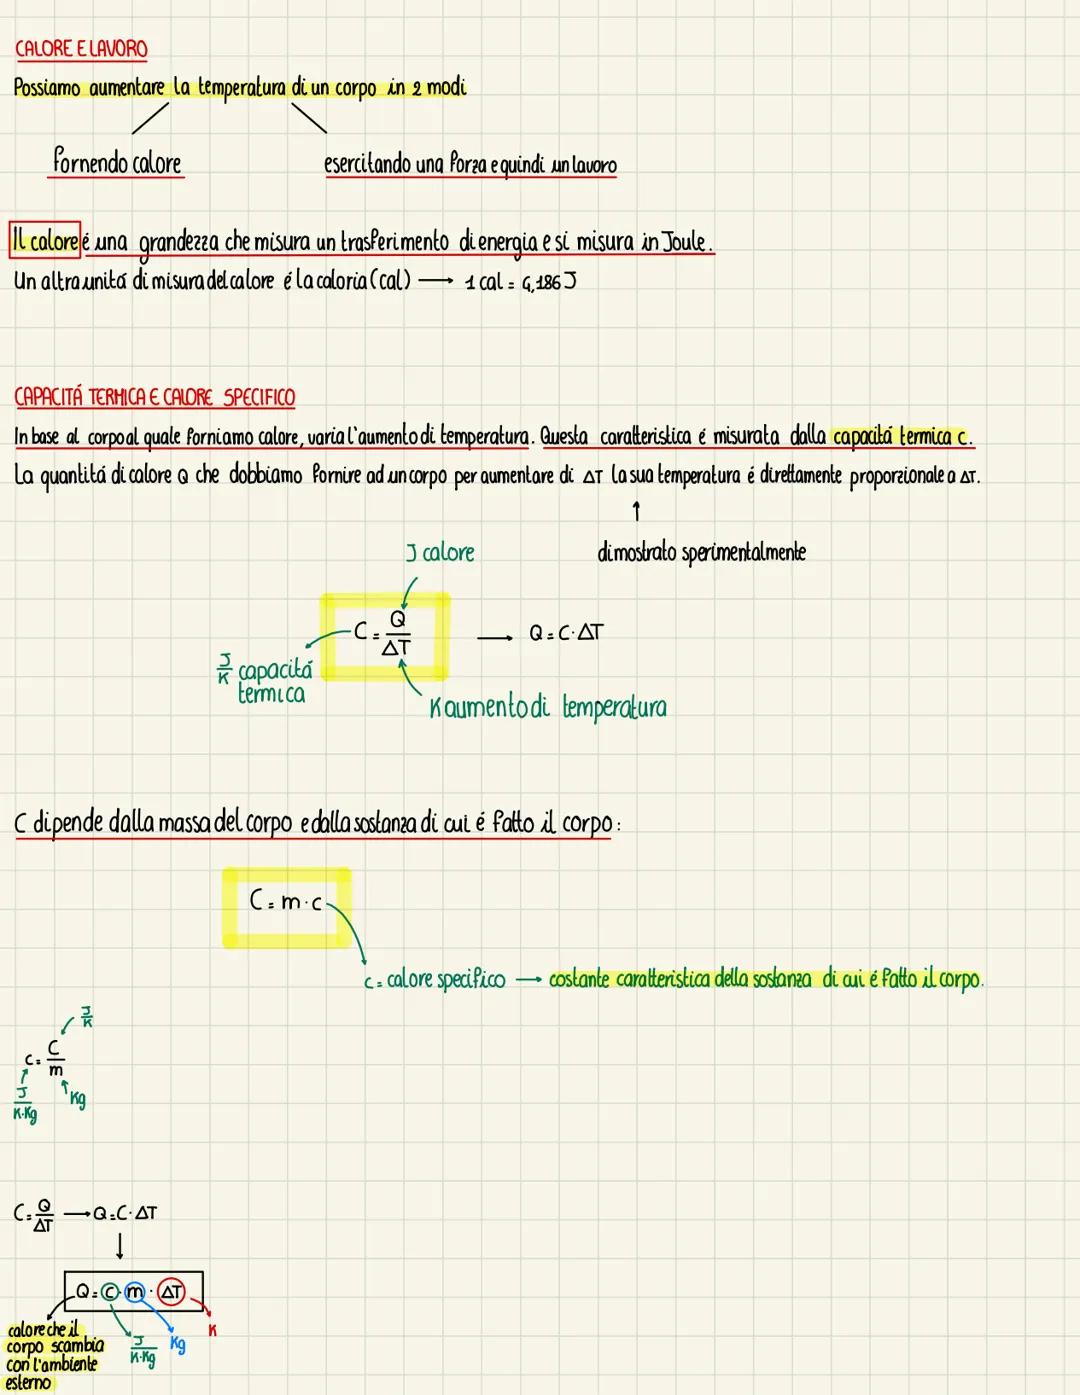 CALORE E LAVORO
Possiamo aumentare la temperatura di un corpo in 2 modi
fornendo calore
esercitando una forza e quindi un lavoro
Il calore é una grandezza che misura un trasferimento di energia e si misura in Joule.
Un altra unitá di misura del calore é la caloria (cal) → 1 cal = 4,186 J
CAPACITÁ TERMICA E CALORE SPECIFICO
In base al corpo al quale forniamo calore, varia l'aumento di temperatura. Questa caratteristica é misurata dalla capacitá termica C.
La quantitá di calore Q che dobbiamo fornire ad un corpo per aumentare di ΔT la sua temperatura é direttamente proporzionale a ΔT.
↑
J calore
dimostrato sperimentalmente
C = Q/ΔT → Q = C·ΔT
J/K capacitá
termica
K aumento di temperatura
C dipende dalla massa del corpo e dalla sostanza di cui é fatto il corpo:
C = m·c
c = calore specifico → costante caratteristica della sostanza di cui é fatto il corpo.
J/K
c = C/m
J/K·Kg
Kg
C = Q/ΔT → Q = C·ΔT
↓
Q = c·m·ΔT
calore che il
corpo scambia
con l'ambiente
esterno
J/K·Kg
Kg
K